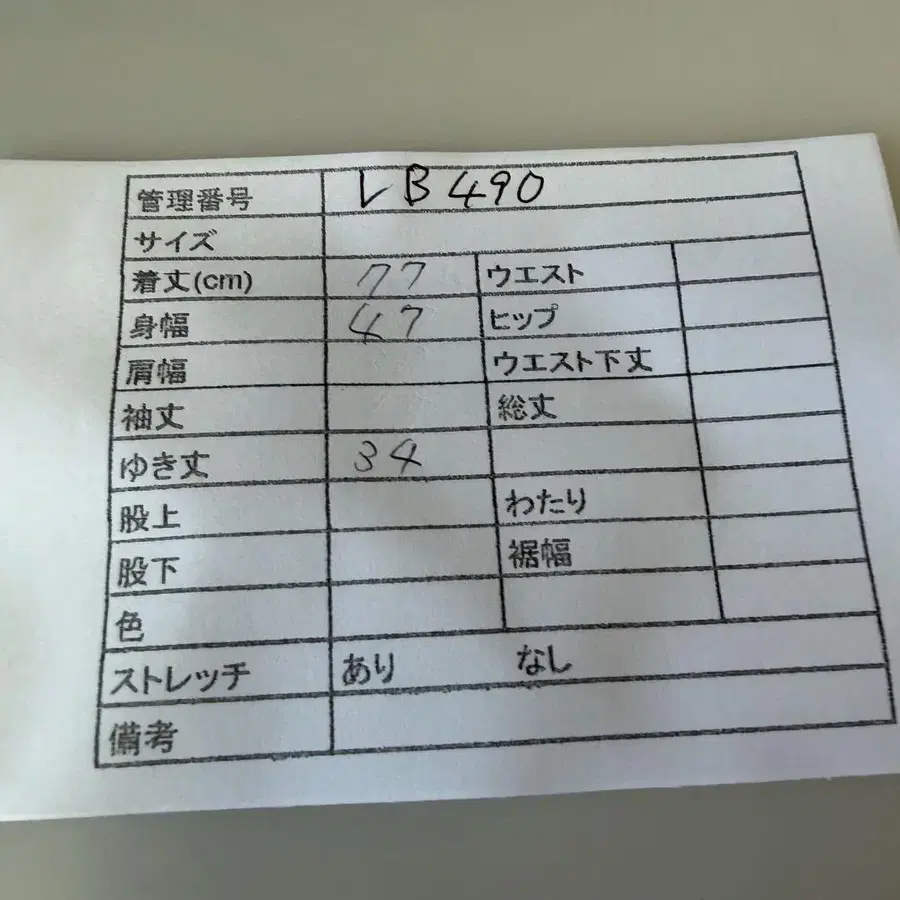 管理番号 LB490
サイズ
着丈(cm) 77 ウエスト
身幅 47 ヒップ
肩幅 ウエスト下丈
袖丈 総丈
ゆき丈 34
股上 わたり
股下 裾幅
色
ストレッチ あり なし
備考